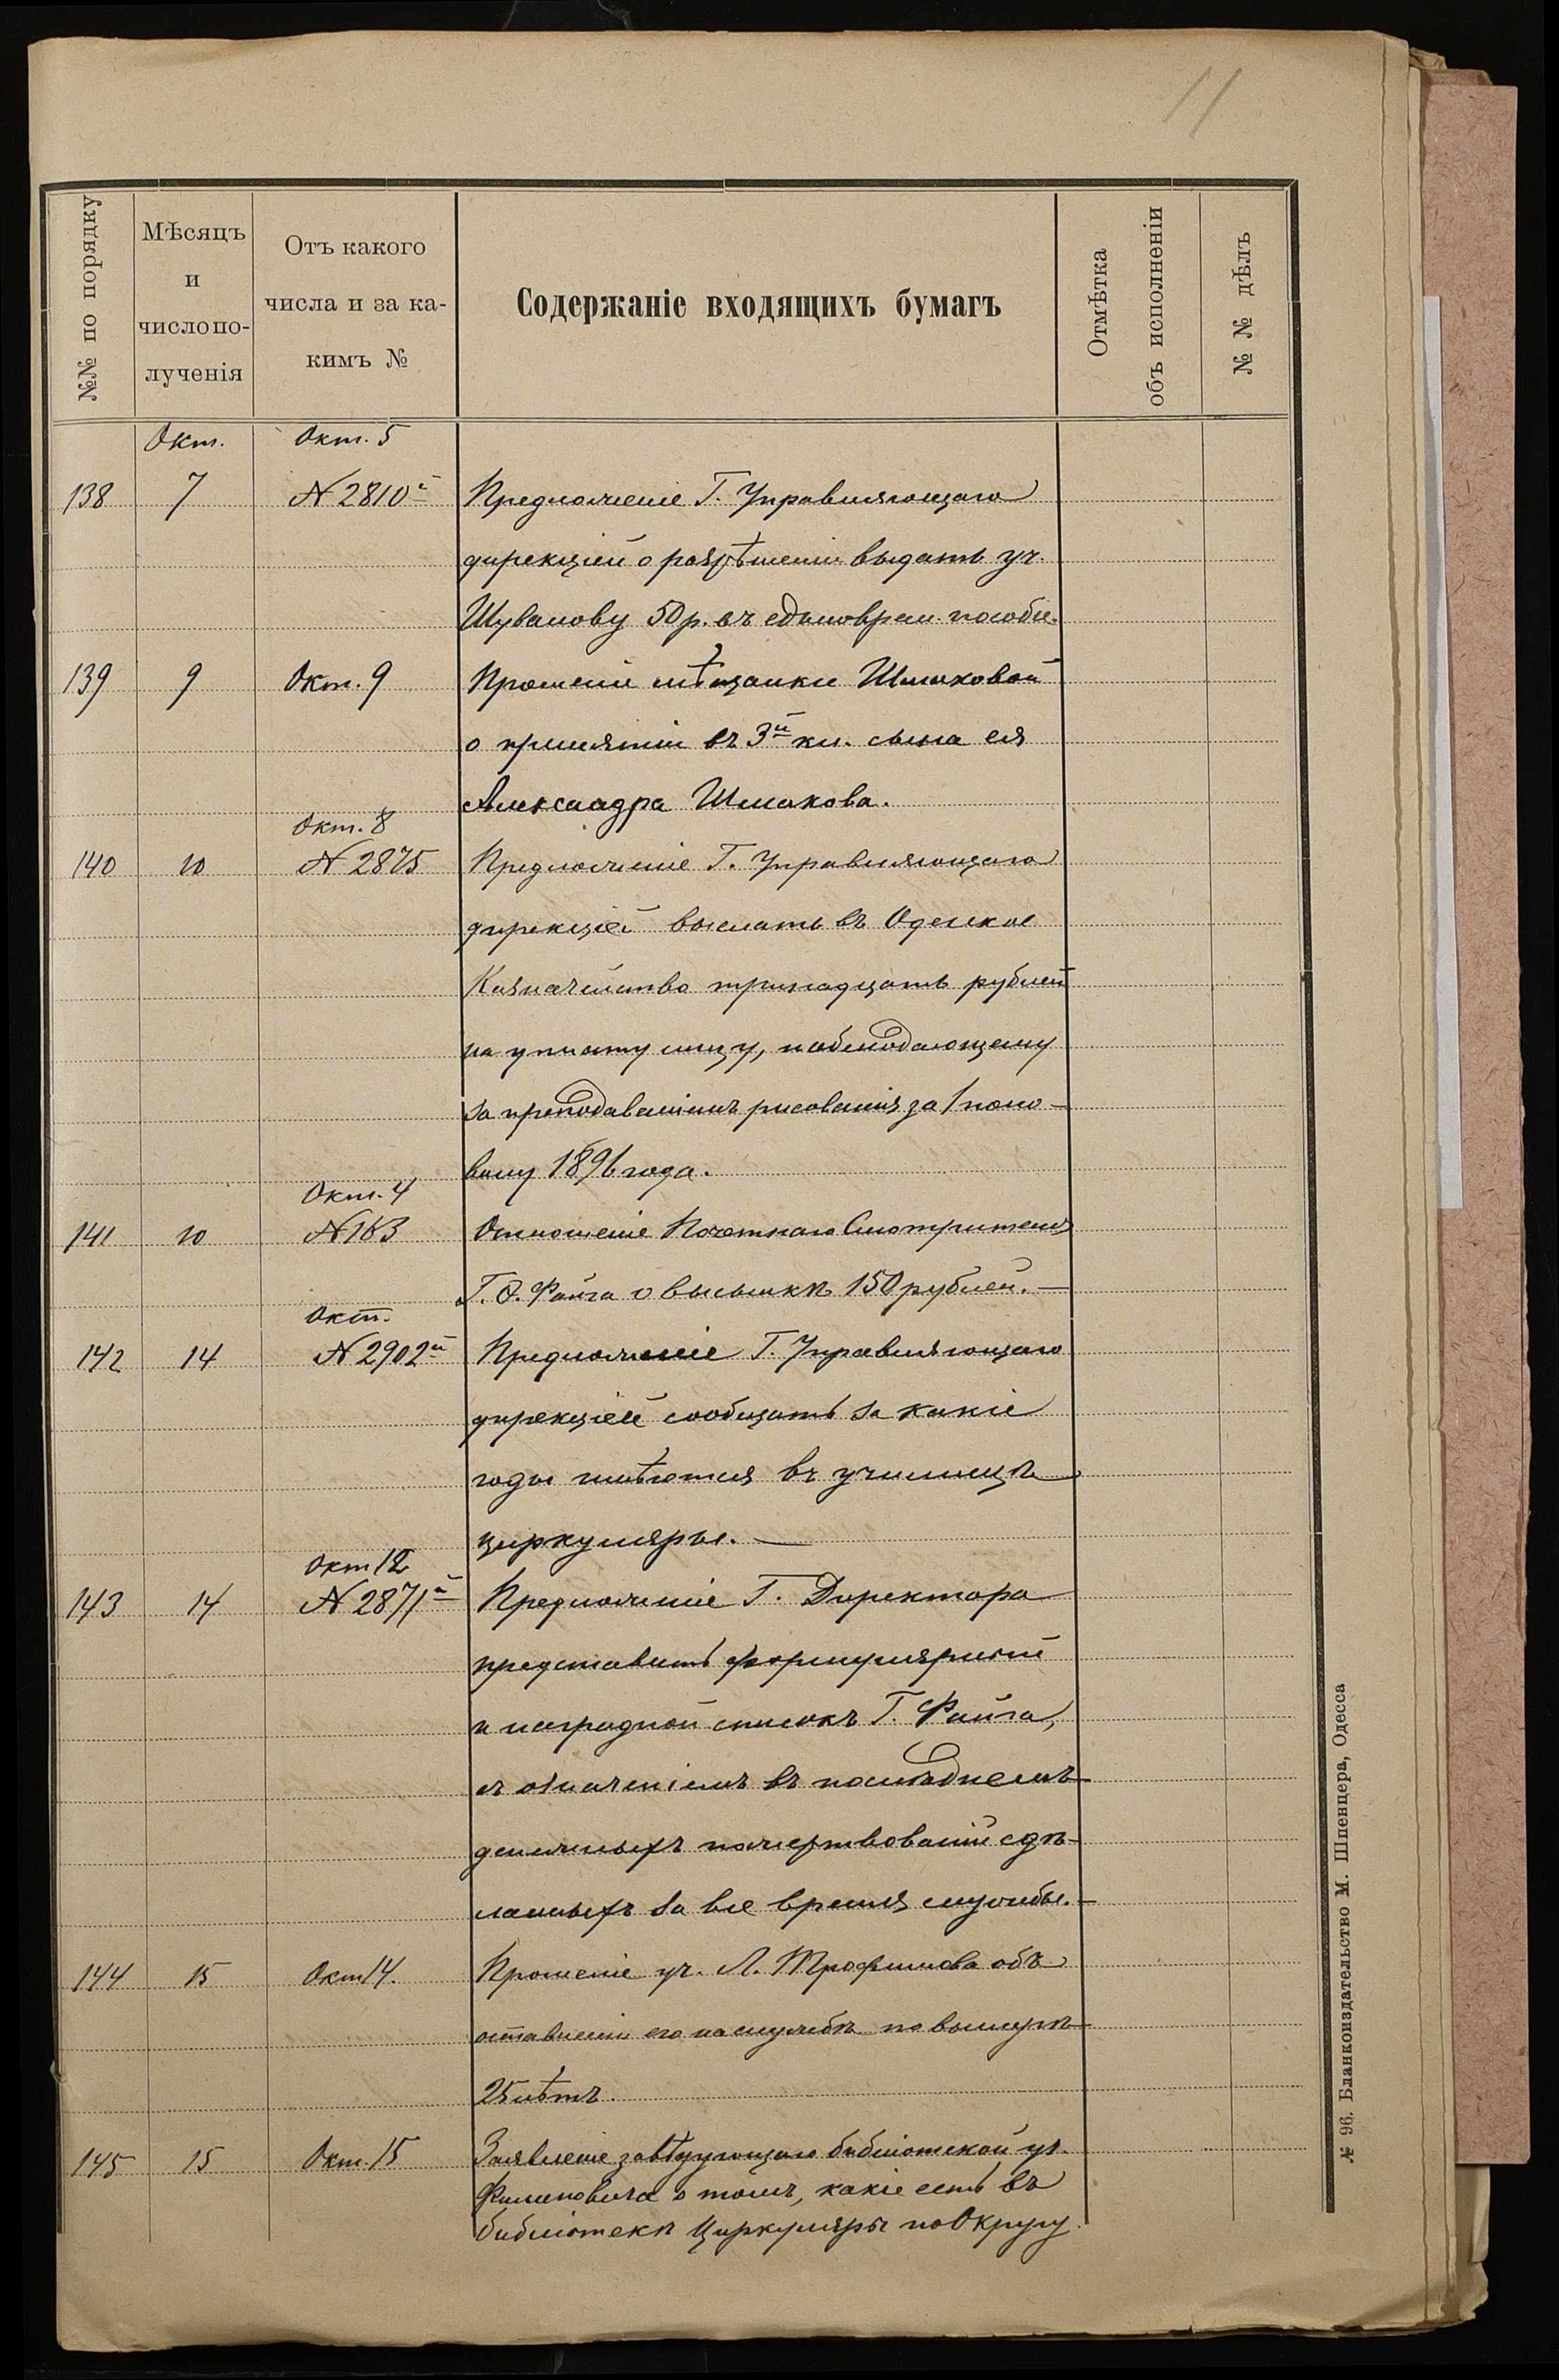 11
№№ по порядку
Мѣсяцъ
и
число по-
лученія
Отъ какого
числа и за ка-
кимъ №
Содержаніе входящихъ бумагъ
Отмѣтка
объ исполненіи
№ № дѣлъ
Окт. Окт. 5
138 7 № 2810й Предложеніе Г. Управляющаго
дирекціей о разрѣшеніи выдать уч.
Шувалову 50 р. въ единоврем. пособіе.
139 9 Окт. 9 Прошеніе мѣщанки Шмаковой
о принятіи въ 3й кл. сына ея
Александра Шмакова.
Окт. 8
140 10 № 2875 Предложеніе Г. Управляющаго
дирекціей выслать въ Одесское
Казначейство тринадцать рублей
на уплату лицу, наблюдающему
за преподаваніемъ рисованія за 1 поло-
вину 1896 года.
Окт. 4
141 10 № 183 Отношеніе Почетнаго Смотрителя
Г. Ѳ. Файга о высылкѣ 150 рублей. —
Окт.
142 14 № 2902й Предложеніе Г. Управляющаго
дирекціей сообщить за какіе
годы имѣются въ училищѣ
циркуляры. —
Окт 12
143 14 № 2871й Предложеніе Г. Директора
представить формулярный
и наградной списокъ Г. Файга,
съ означеніемъ въ послѣднемъ
денежныхъ пожертвованій сдѣ-
ланныхъ за все время службы. —
144 15 Окт 14. Прошеніе уч. Л. Трофимова объ
оставленіи его на службѣ по выслугѣ
25 лѣтъ.
145 15 Окт. 15 Заявленіе завѣдующаго библіотекой уч.
Филиповича о томъ, какіе есть въ
библіотекѣ Циркуляры по Округу.
№ 96. Бланкоиздательство М. Шпенцера, Одесса